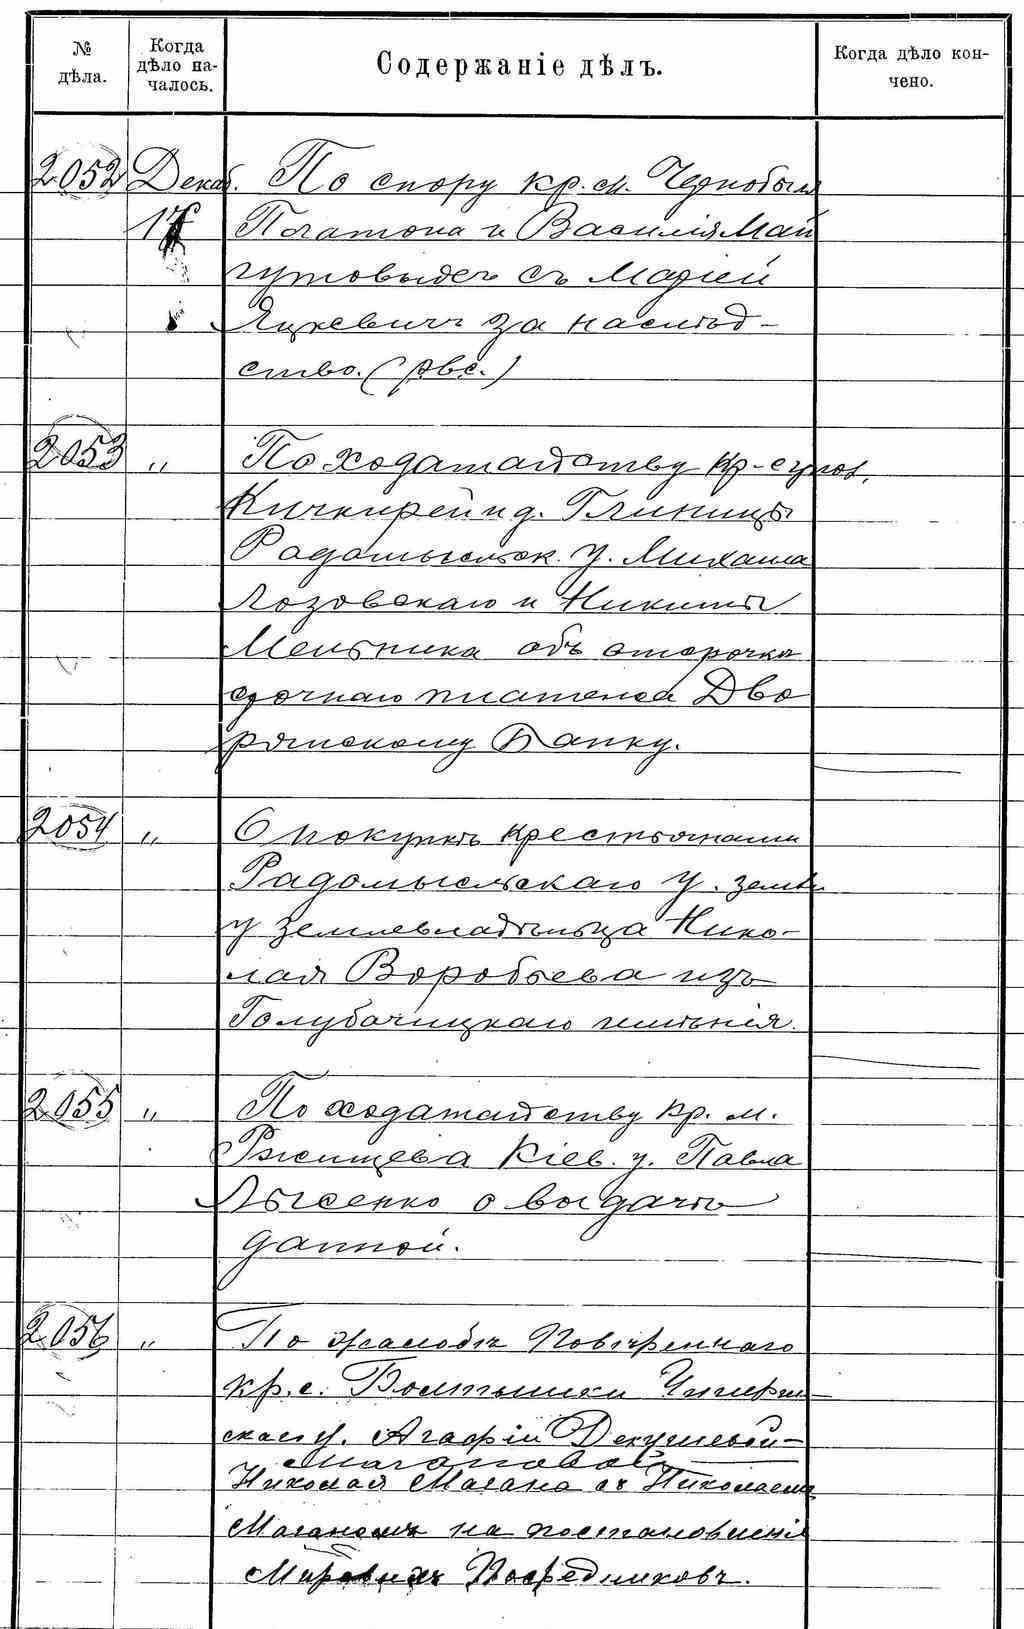 № дѣла.
Когда дѣло на-
чалось.
Содержаніе дѣлъ.
Когда дѣло кон-
чено.
2052 Декаб. По спору кр. м. Чернобыля
17 Платона и Василія Май
гутовыхъ съ Маріей
Яцкевичъ за наслѣд-
ство. (рвс.)
2053 „ По ходатайству кр-
Кичкирей и д. Глиницы
Радомысльск. у. Михаила
Лозовскаго и Никиты
Мельника объ отсрочкѣ
срочнаго платежа Дво
рянскому Банку.
2054 „ О покупкѣ крестьянами
Радомысльскаго у. земли
у землевладѣльца Нико-
лая Воробьева изъ
Голубачицкаго имѣнія.
2055 „ По ходатайству кр. м.
Ржищева Кіев. у. Павла
Лысенко о выдачѣ
данной.
2056 „ По жалобѣ повѣреннаго
кр. с. Болтышки Чигирин-
скаго у. Агафіи
Николая Магана съ Николаемъ
Маганомъ на постановленія
Мировыхъ Посредниковъ.